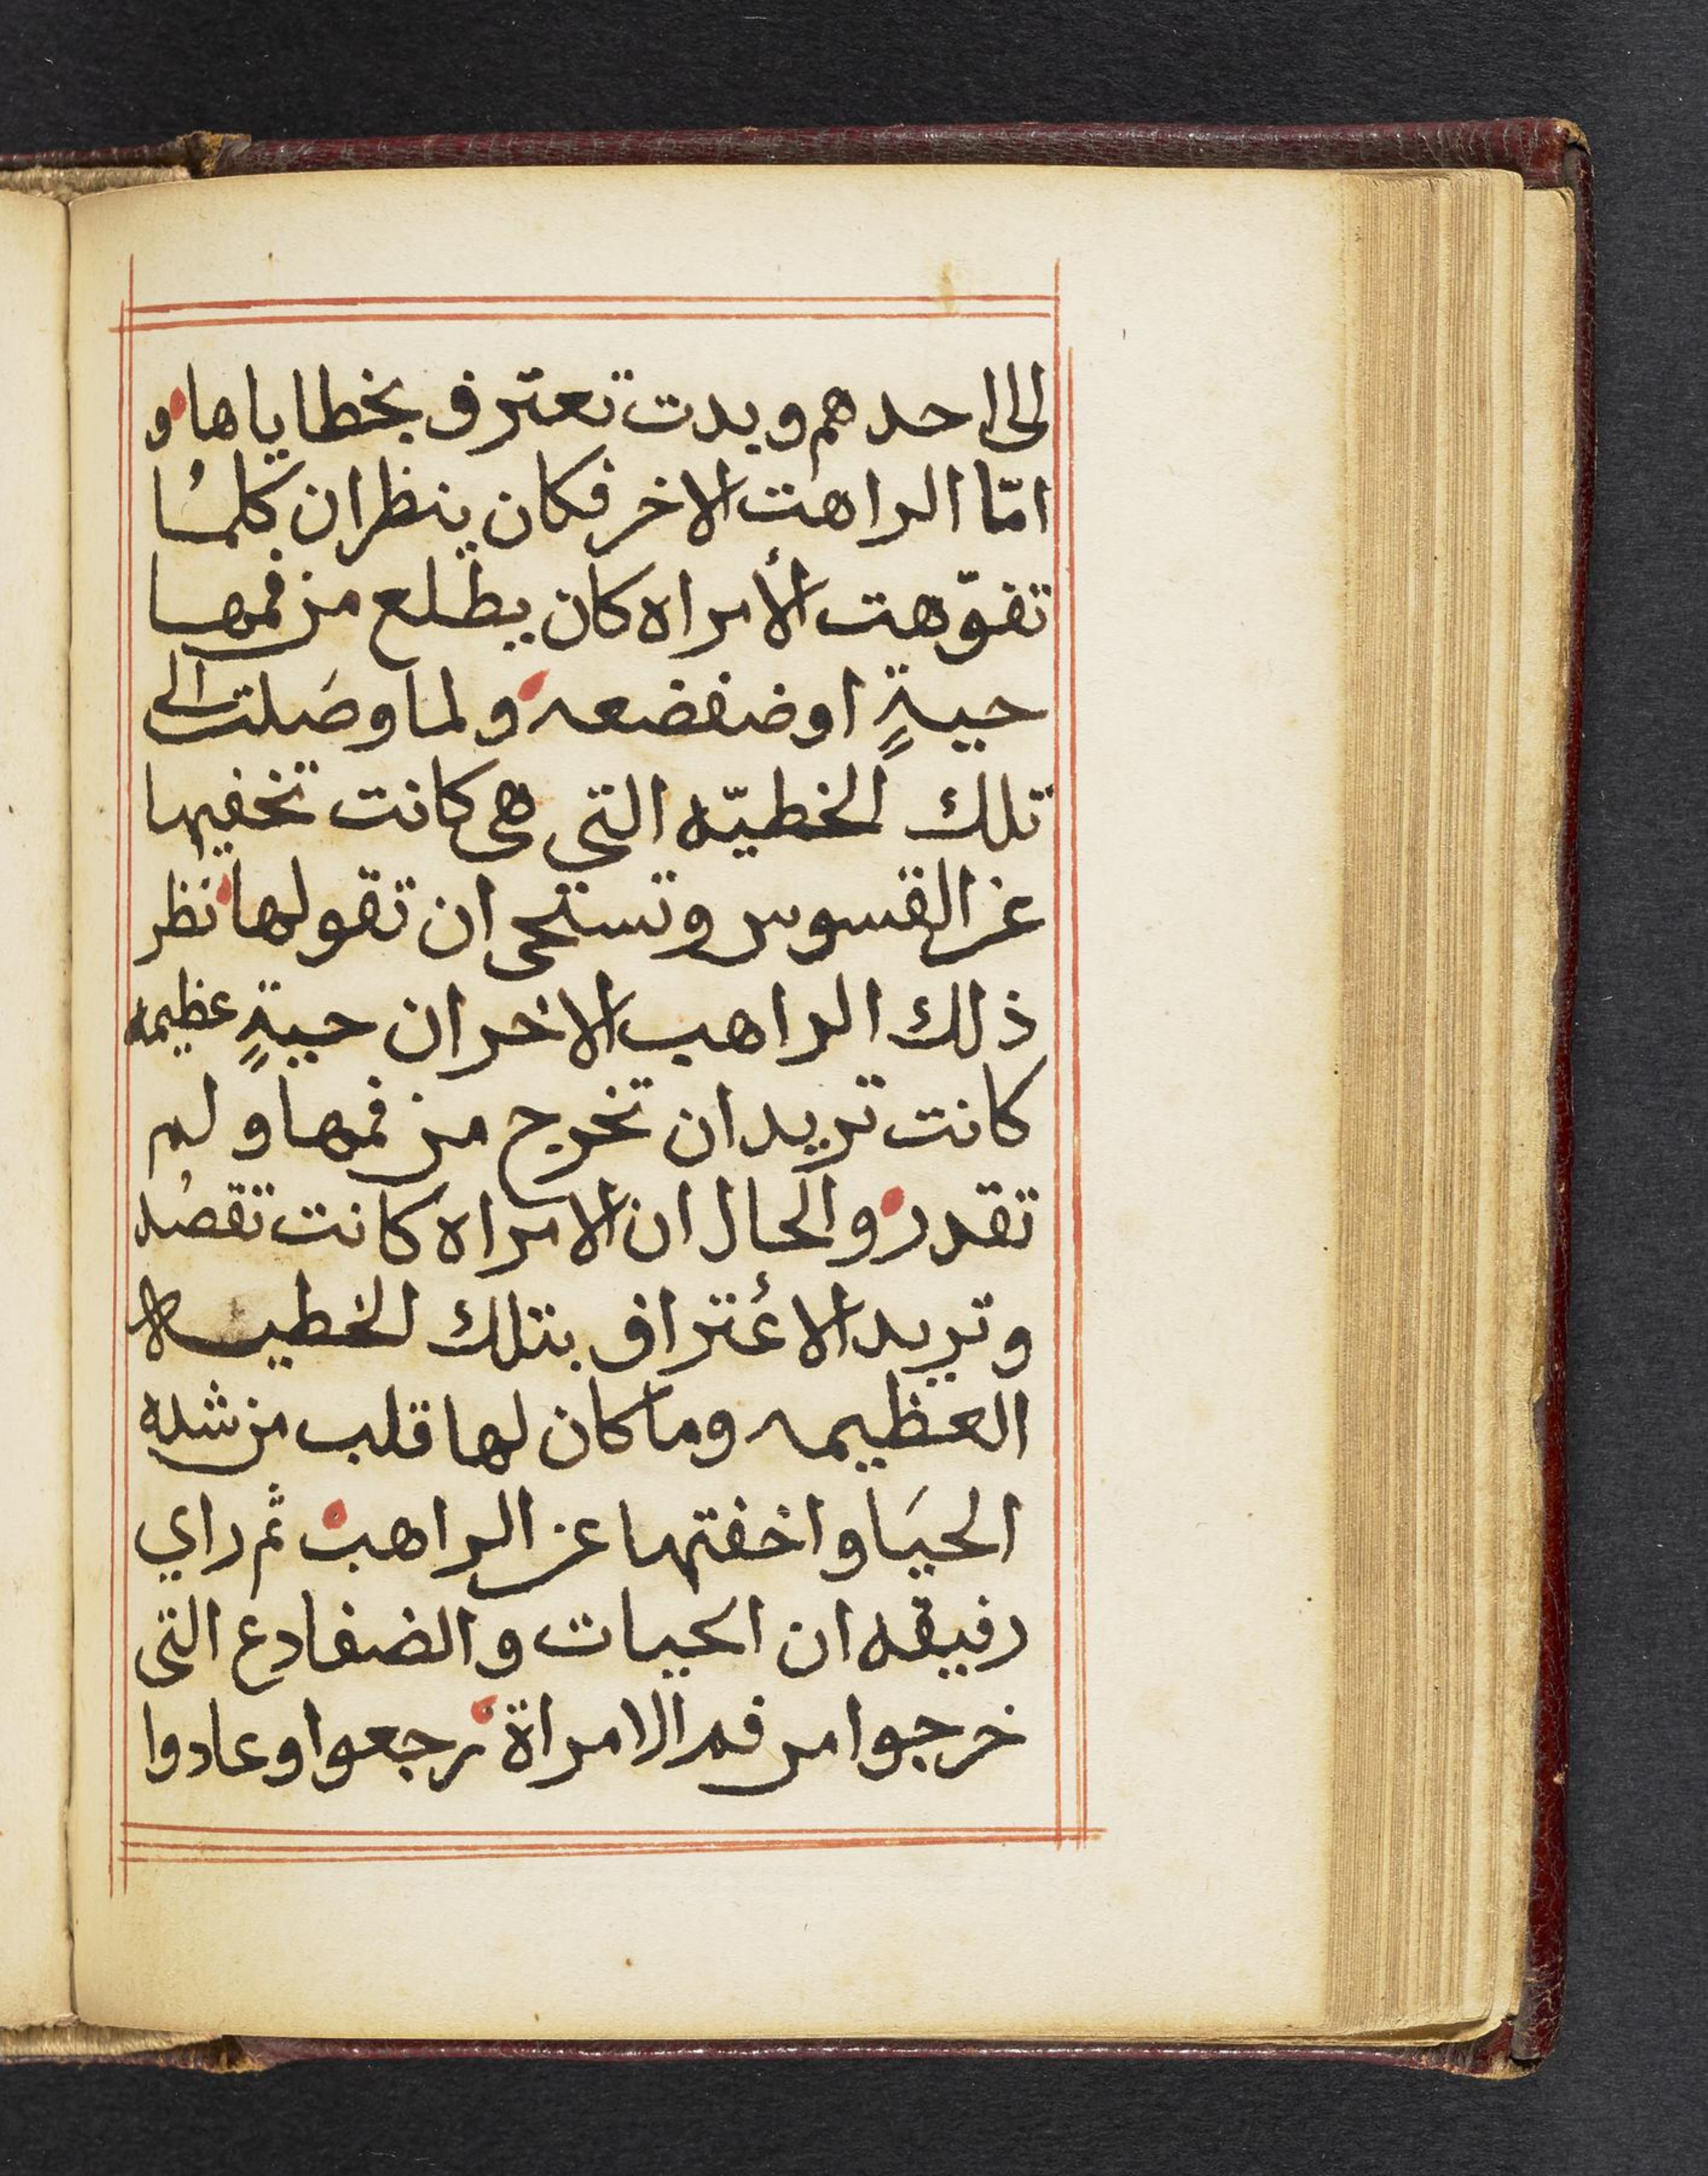 الى احدهم وبدت تعترف بخطاياها و
امّا الراهب الاخر فكان ينظر ان كلما
تفوّهت الأمراه كان يطلع من فمها
حيةٍ او ضفضعه ولما وصَلت الى
تلك الخطيّه التي هي كانت تخفيها
عن القسوس وتستحى ان تقولها نظر
ذلك الراهب الاخر ان حيةٍ عظيمه
كانت تريد ان تخرج من فمها ولم
تقدر والحال ان الامراه كانت تقصد
وتريد الاعتراف بتلك الخطيه
العظيمه وما كان لها قلب من شده
الحيَا واخفتها عن الراهب ثم راي
رفيقه ان الحيات والضفادع التى
خرجوا من فم الامراة رجعوا وعادوا